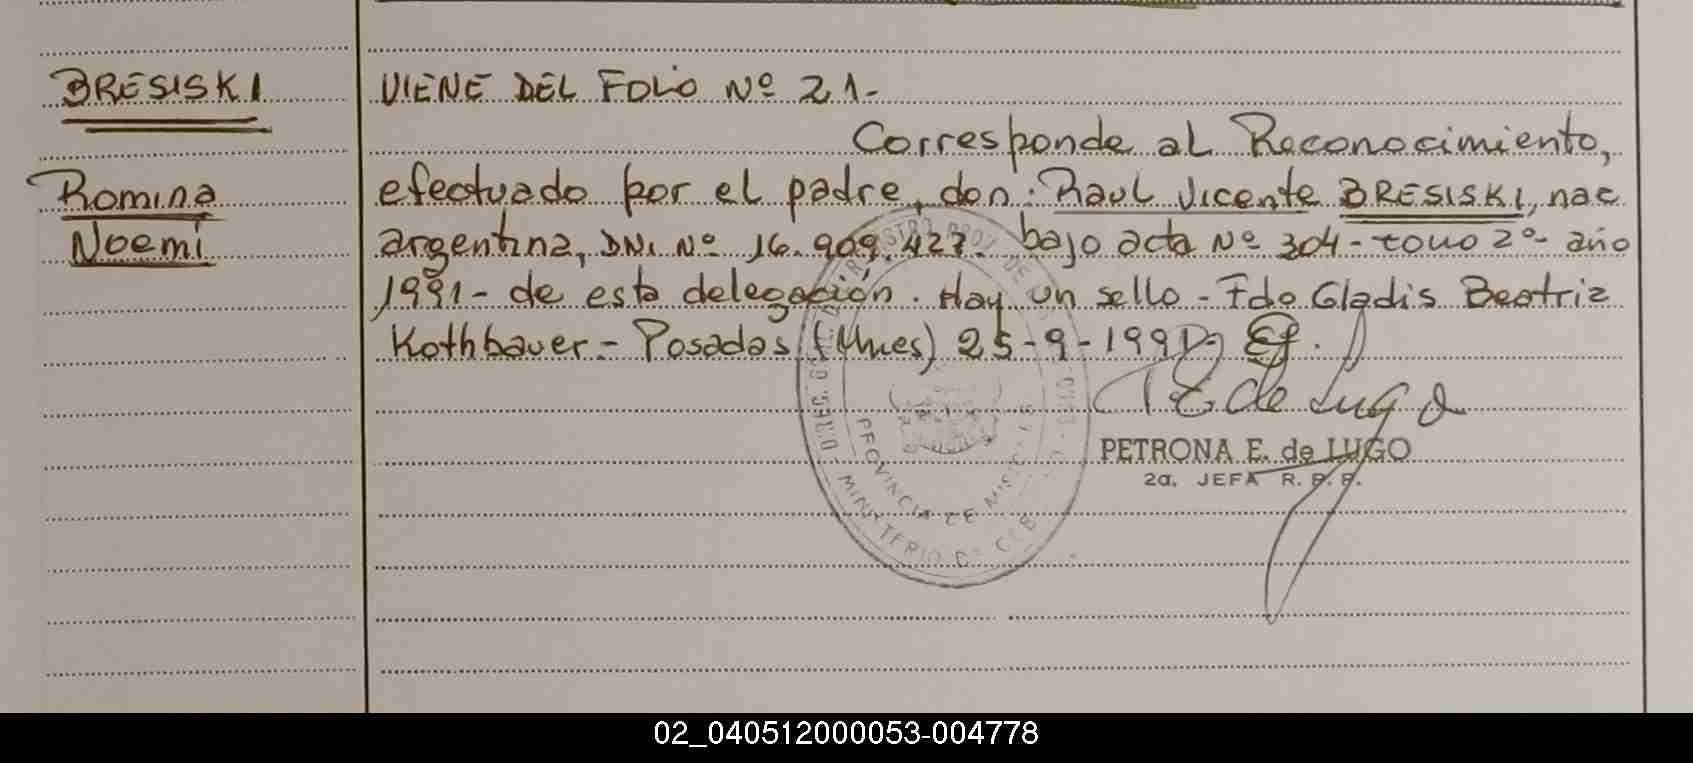 BRESISKI
Romina
Noemi
VIENE DEL FOLIO Nº 21-
Corresponde al Reconocimiento,
efectuado por el padre, don: Raul Vicente BRESISKI, nac
argentina, DNI. Nº 16.909.427. bajo acta Nº 304- tomo 2º- año
1991- de esta delegación. Hay un sello- Fdo Gladis Beatriz
Kothbauer.- Posadas (Mnes) 25-9-1991
P E de Lugo
PETRONA E. de LUGO
2a. JEFA R. P. P.
PROVINCIA DE MISIONES
MINISTERIO DE GOB
02_040512000053-004778